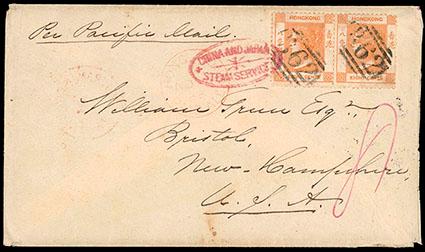 Per Pacific Mail.
CHINA AND JAPAN
STEAM SERVICE
HONGKONG
HONGKONG
B62
B62
William Green Esqr,
Bristol,
New-Hampshire
U. S. A.